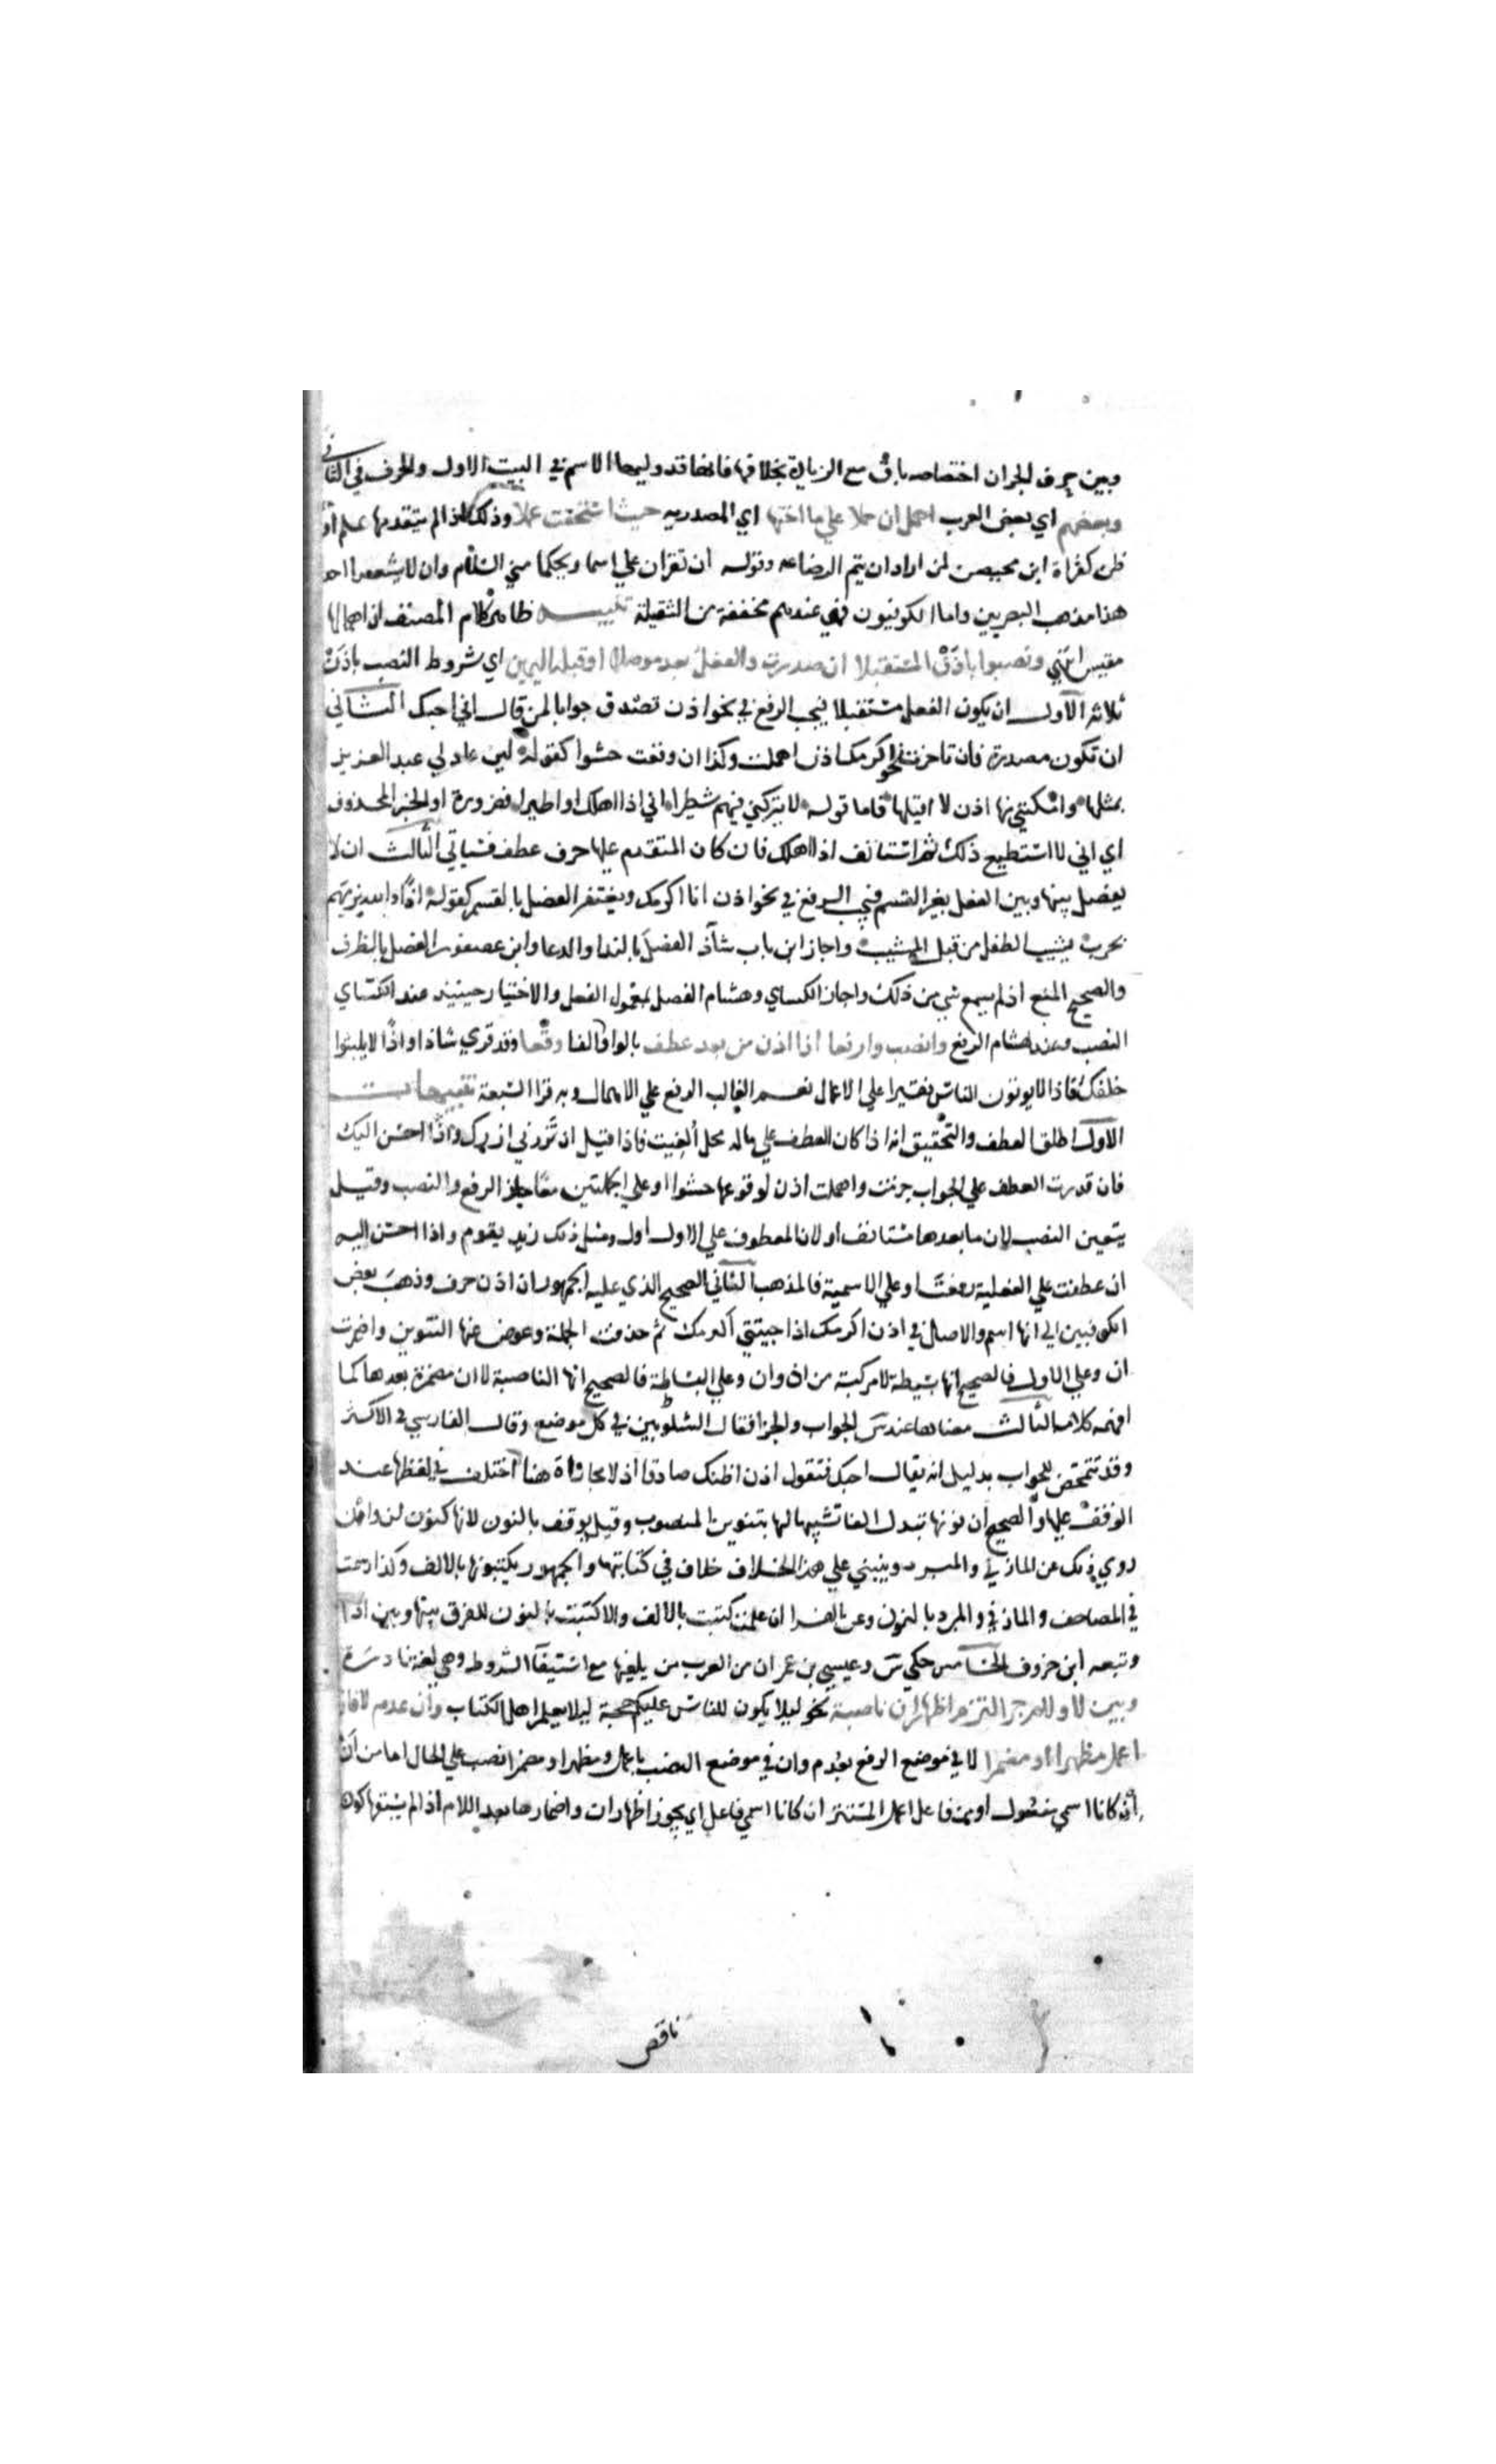 وبين حرف الجر ان اختصاصه باق مع الزيادة بخلافها فانها قد وليها الاسم في البيت الاول والحرف في الثاني
وبعضهم اي بعض العرب اهمل ان حملا علي ما اختها اي المصدريه حيث استحقت عملا وذلك اذا لم يتقدمها علم او
ظن كقراة ابن محيصن لمن اراد ان يتم الرضاعه وقوله ان تقران علي اسما ويحكما مني السلام وان لا تشعرا احدا
هذا مذهب البصريين واما الكوفيون فهي عندهم مخففة من الثقيلة تنبيه ظاهر كلام المصنف ان اهمالها
مقيس انتهي ونصبوا باذن المستقبلا ان صدرت والفعل بعد موصلا او قبله اليمين اي شروط النصب باذن
ثلاثة الاول ان يكون الفعل مستقبلا فيجب الرفع في نحو اذن تصدق جوابا لمن قال اني احبك الثاني
ان تكون مصدرة فان تاخرت نحو اكرمك اذن اهملت وكذا ان وقعت حشوا كقوله لين عاد لي عبد العزيز
بمثلها وامكنني منها اذن لا اقيلها فاما قوله لا تتركني فيهم شطيرا اني اذا اهلك او اطيرا فضرورة او الخبر المحذوف
اي اني لا استطيع ذلك ثم استانف اذا اهلك فان كان المتقدم عليها حرف عطف فسياتي الثالث ان لا
يفصل بينها وبين الفعل بغير القسم فيجب الرفع في نحو اذن انا اكرمك ويغتفر الفصل بالقسم كقوله اذا والله نرميهم
بحرب يشيب الطفل من قبل المشيب واجاز ابن باب شاذ الفصل بالندا والدعا وابن عصفور الفصل بالظرف
والصحيح المنع اذ لم يسمع شي من ذلك واجاز الكساي وهشام الفصل بمعمول الفعل والاختيار حينيذ عند الكساي
النصب وعند هشام الرفع وانصب وارفعا اذا اذن من بعد عطف بالواو والفا وقعا وقد قري شاذا واذا لا يلبثوا
خلفك فاذا لا يوتون الناس نقيرا علي الاعمال نعم الغالب الرفع علي الاهمال وبه قرا السبعة تنبيهات
الاول اطلق العطف والتحقيق انه اذا كان العطف علي ما له محل الغيت فاذا قيل ان تزرني ازرك واذا احسن اليك
فان قدرت العطف علي الجواب جزمت واهملت اذن لوقوعها حشوا او علي الجملتين معا جاز الرفع والنصب وقيل
يتعين النصب لان ما بعدها مستانف او لان المعطوف علي الاول اول ومثل ذلك زيد يقوم واذا احسن اليه
ان عطفت علي الفعلية رفعت او علي الاسمية فالمذهبان الثاني الصحيح الذي عليه الجمهور ان اذن حرف وذهب بعض
الكوفيين الي انها اسم والاصل في اذن اكرمك اذا جيتني اكرمك ثم حذفت الجملة وعوض عنها التنوين واضمرت
ان وعلي الاول فالصحيح انها بسيطة لا مركبة من اذ وان وعلي البساطة فالصحيح انها الناصبة لا ان مضمرة بعدها كما
افهمه كلامه الثالث معناها عند س الجواب والجزا فقال الشلوبين في كل موضع وقال الفارسي في الاكثر
وقد تتمحض للجواب بدليل انه يقال احبك فتقول اذن اظنك صادقا اذ لا مجازاة هنا اختلف في لفظها عند
الوقف عليها والصحيح ان نونها تبدل الفا تشبيها لها بتنوين المنصوب وقيل يوقف بالنون لانها كنون لن وان
روي ذلك عن المازني والمبرد وينبني علي هذا الخلاف خلاف في كتابتها والجمهور يكتبونها بالالف وكذا رسمت
في المصاحف والمازني والمبرد بالنون وعن الفرا ان عملت كتبت بالالف والا كتبت بالنون للفرق بينها وبين اذا
وتبعه ابن خروف الخامس حكي س وعيسي بن عمر ان من العرب من يلغيها مع استيفا الشروط وهي لغة نادرة
وبين لا ولام جر التزم اظهار ان ناصبة نحو ليلا يكون للناس عليكم حجة ليلا يعلم اهل الكتاب وان عدم لا فان
اعمل مظهرا او مضمرا لا في موضع الرفع بعدم وان في موضع النصب باعمل ومظهرا ومضمرا نصب علي الحال اما من ان
ان كانا اسمي مفعول او من فاعل اعمل المستتر ان كانا اسمي فاعل اي يجوز اظهار ان واضمارها بعد اللام اذا لم يسبقها كون
ناقص